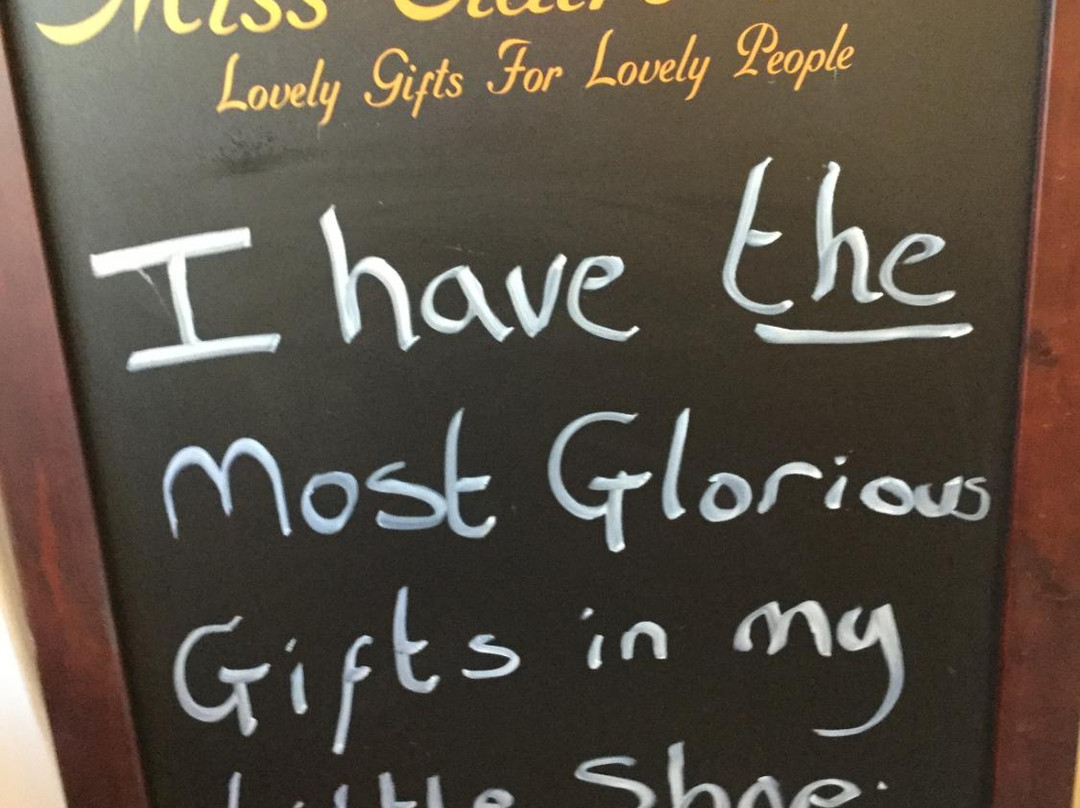 Miss
Lovely Gifts For Lovely People
I have the
Most Glorious
Gifts in my
Little